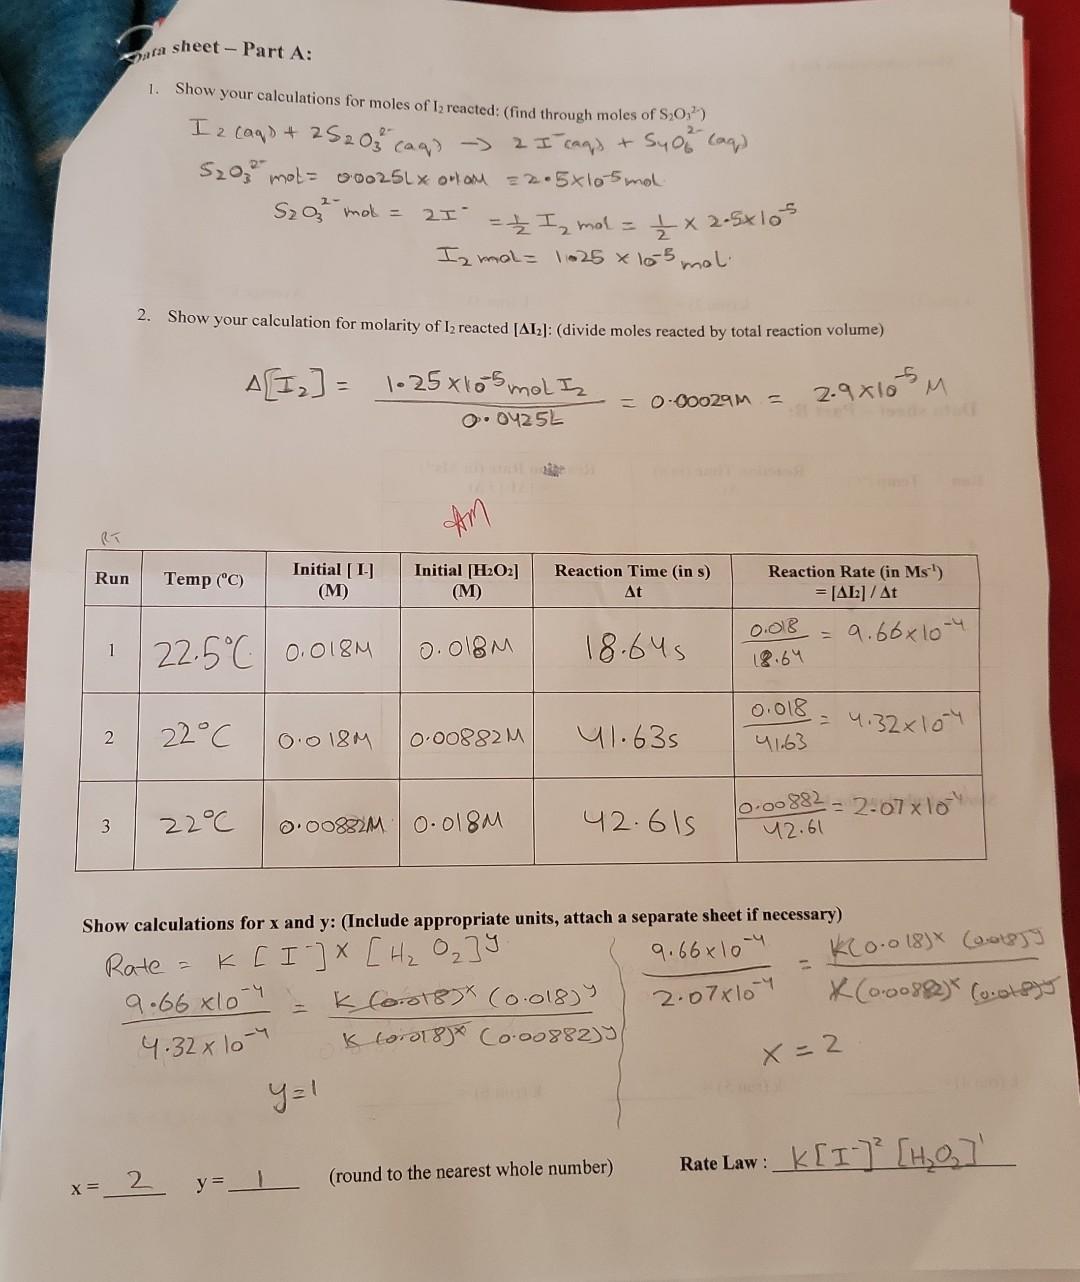 Data sheet – Part A:
1. Show your calculations for moles of I₂ reacted: (find through moles of S₂O₃²⁻)
I₂ (aq) + 2S₂O₃²⁻ (aq) → 2I⁻(aq) + S₄O₆²⁻ (aq)
S₂O₃²⁻ mol = 0.0025L x 0.10M = 2.5x10⁻⁵ mol
S₂O₃²⁻ mol = 2I⁻ = 1/2 I₂ mol = 1/2 x 2.5x10⁻⁵
I₂ mol = 1.25 x 10⁻⁵ mol.
2. Show your calculation for molarity of I₂ reacted [ΔI₂]: (divide moles reacted by total reaction volume)
Δ[I₂] = 1.25x10⁻⁵ mol I₂ / 0.0425L = 0.00029M = 2.9x10⁻⁵ M
AM
RT
Run Temp (°C) Initial [ I-] (M) Initial [H2O2] (M) Reaction Time (in s) Δt Reaction Rate (in Ms⁻¹) = [ΔI₂] / Δt
1 22.5°C 0.018M 0.018M 18.64s 0.018 / 18.64 = 9.66x10⁻⁴
2 22°C 0.018M 0.00882M 41.63s 0.018 / 41.63 = 4.32x10⁻⁴
3 22°C 0.00882M 0.018M 42.61s 0.00882 / 42.61 = 2.07x10⁻⁴
Show calculations for x and y: (Include appropriate units, attach a separate sheet if necessary)
Rate = K [I⁻]ˣ [H₂O₂]ʸ
9.66 x10⁻⁴ / 4.32x10⁻⁴ = K (0.018)ˣ (0.018)ʸ / K (0.018)ˣ (0.00882)ʸ
y=1
9.66x10⁻⁴ / 2.07x10⁻⁴ = K(0.018)ˣ (0.018)ʸ / K(0.00882)ˣ (0.018)ʸ
x = 2
x = 2 y = 1 (round to the nearest whole number) Rate Law : K[I⁻]² [H₂O₂]¹